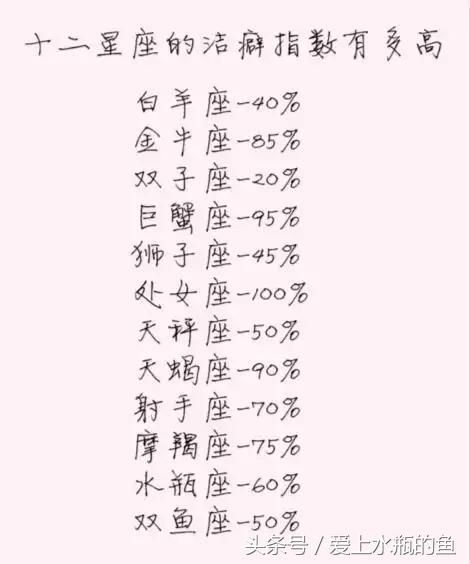 十二星座的洁癖指数有多高
白羊座-40%
金牛座-85%
双子座-20%
巨蟹座-95%
狮子座-45%
处女座-100%
天秤座-50%
天蝎座-90%
射手座-70%
摩羯座-75%
水瓶座-60%
双鱼座-50%
头条号/爱上水瓶的鱼